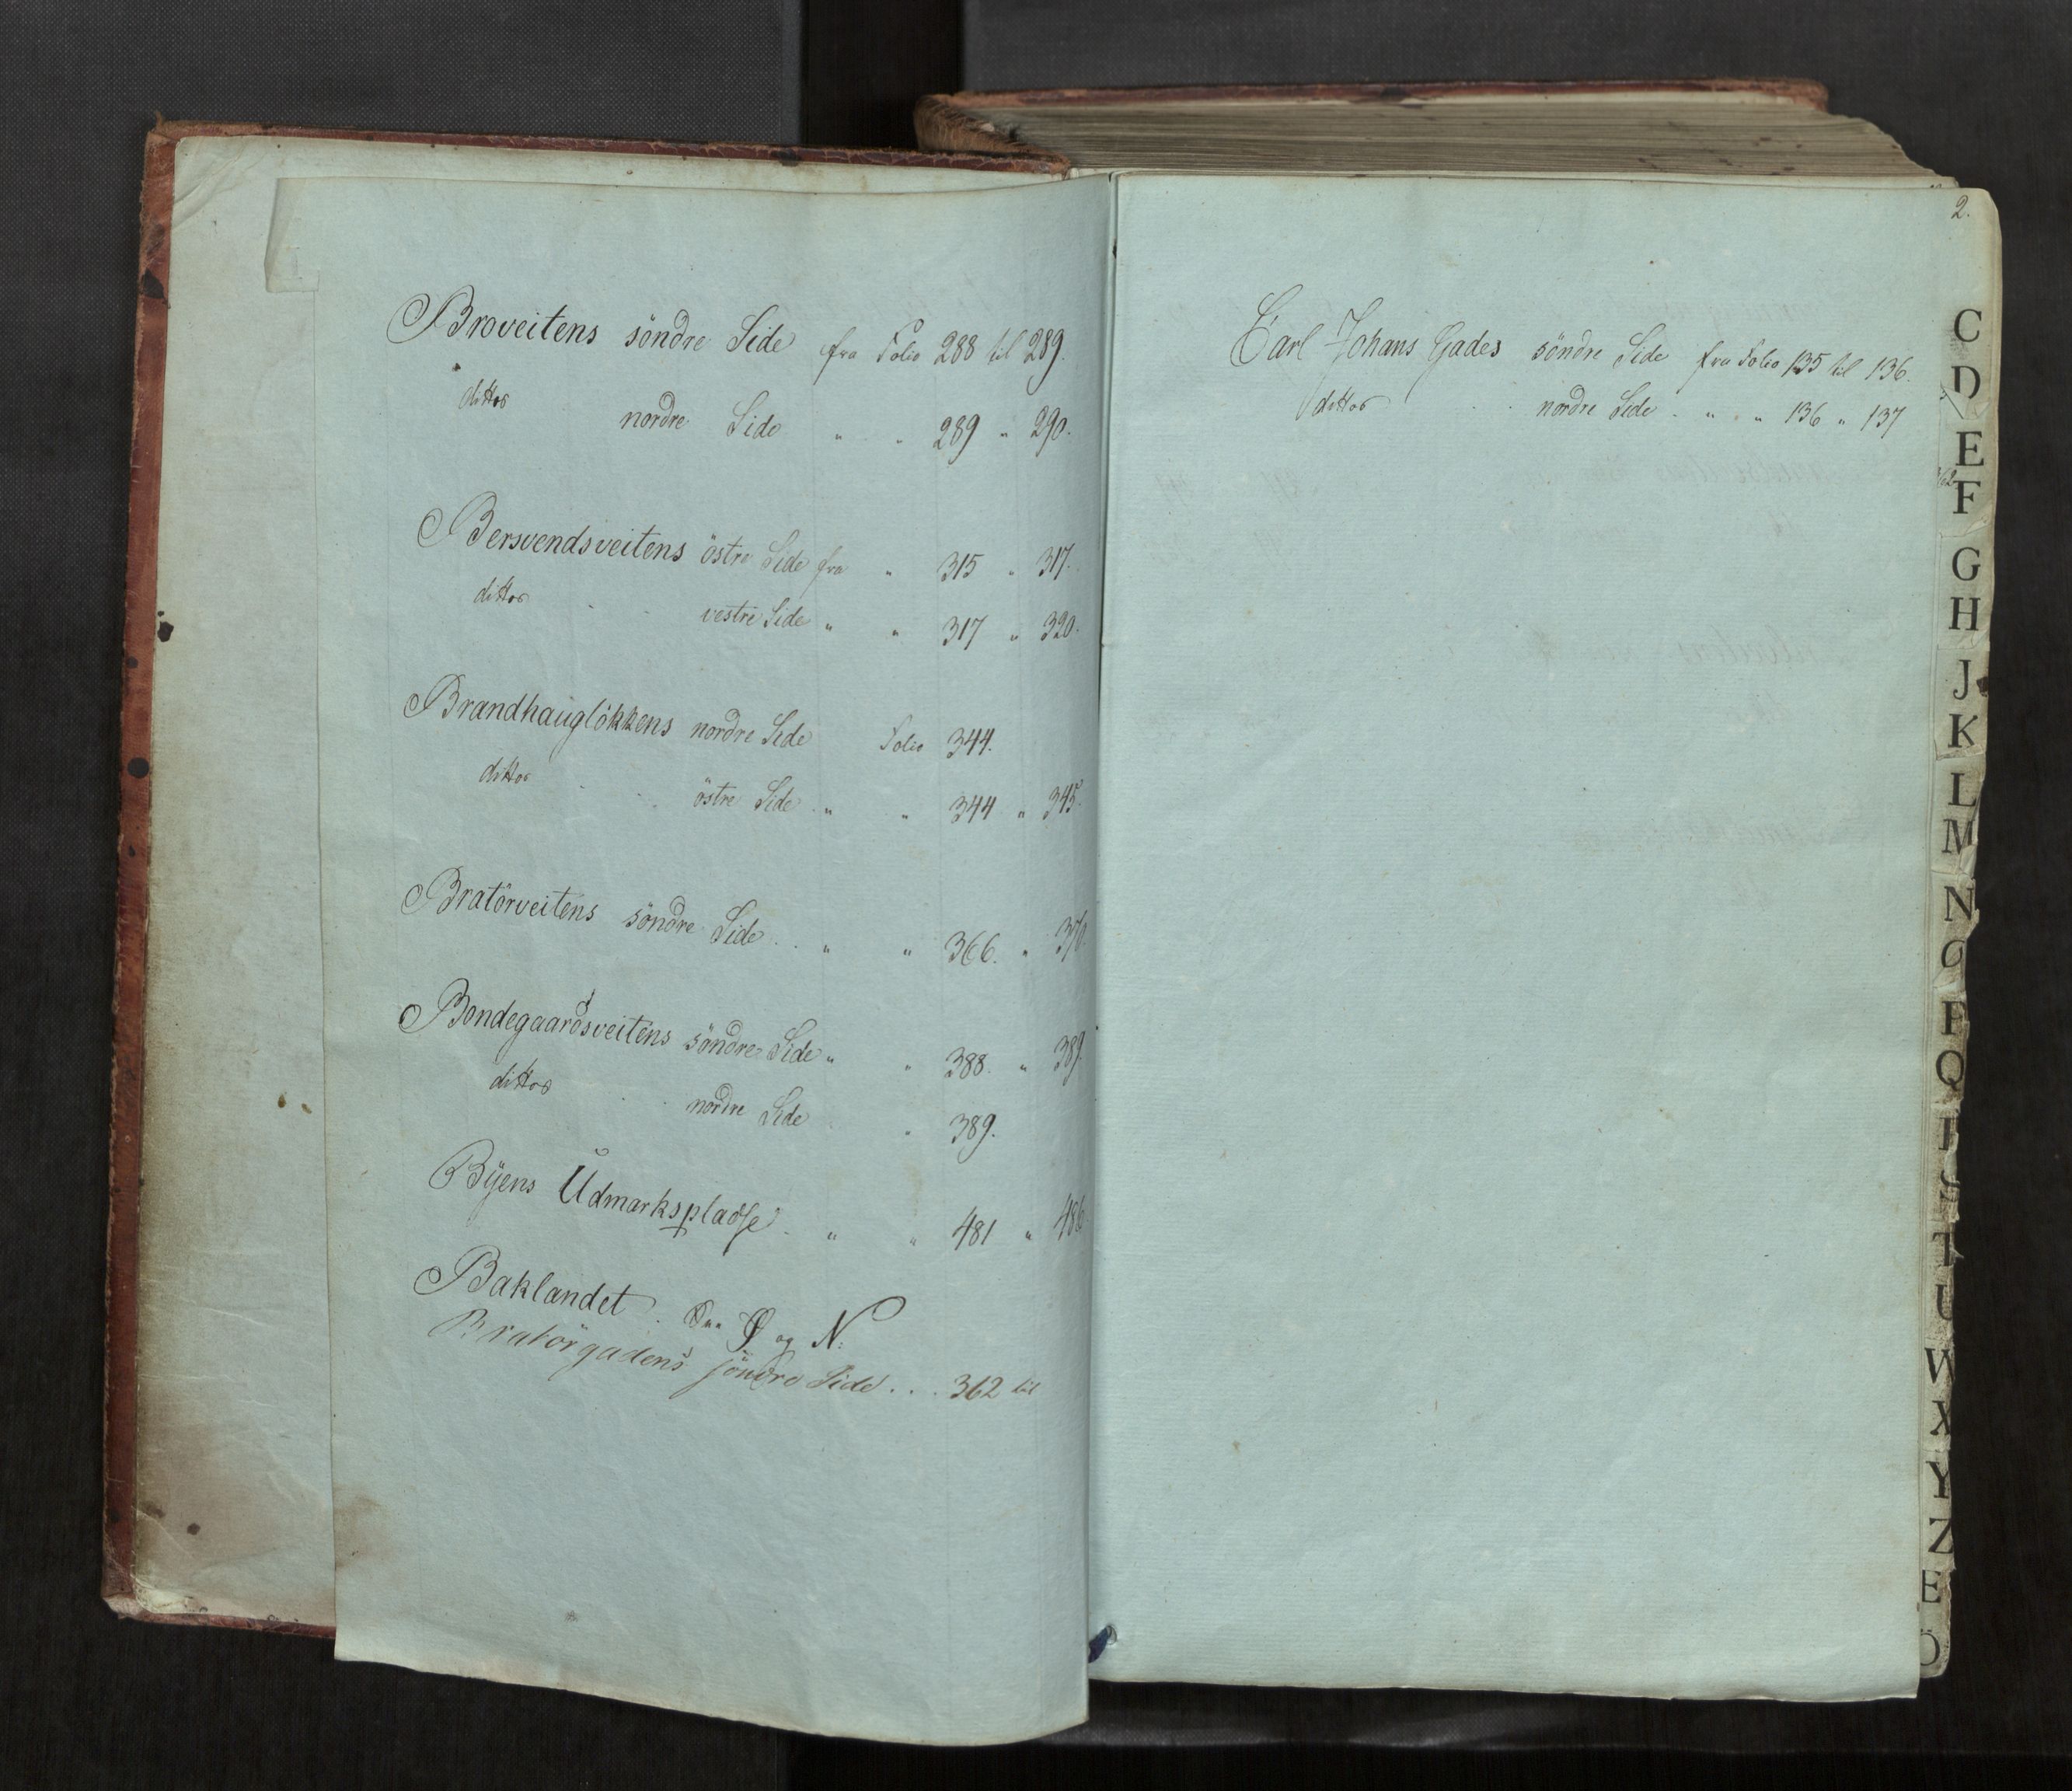 Broveitens söndre Side fra Folio 288 til 289.
dittos nordre Side " " 289 " 290.
Bersvendsveitens östre Side fra " 315 " 317.
dittos vestre Side " " 317 " 320.
Brandhauglökkens nordre Side Folio 344.
dittos östre Side " " 344 " 345.
Bratörveitens söndre Side " " 366. " 370.
Bondegaardsveitens söndre Side " " 388. " 389.
dittos nordre Side " 389.
Byens Udmarkspladse " " 481 " 486
Baklandet. Ø og N.
Bratörgadens söndre Side . . . 362 til
2.
Carl Johans Gades söndre Side fra Folio 135 til 136.
dittos nordre Side . " " 136 " 137
C
D
E
F
G
H
J
K
L
M
N
O
P
Q
S
T
U
W
X
Y
Z
Ö